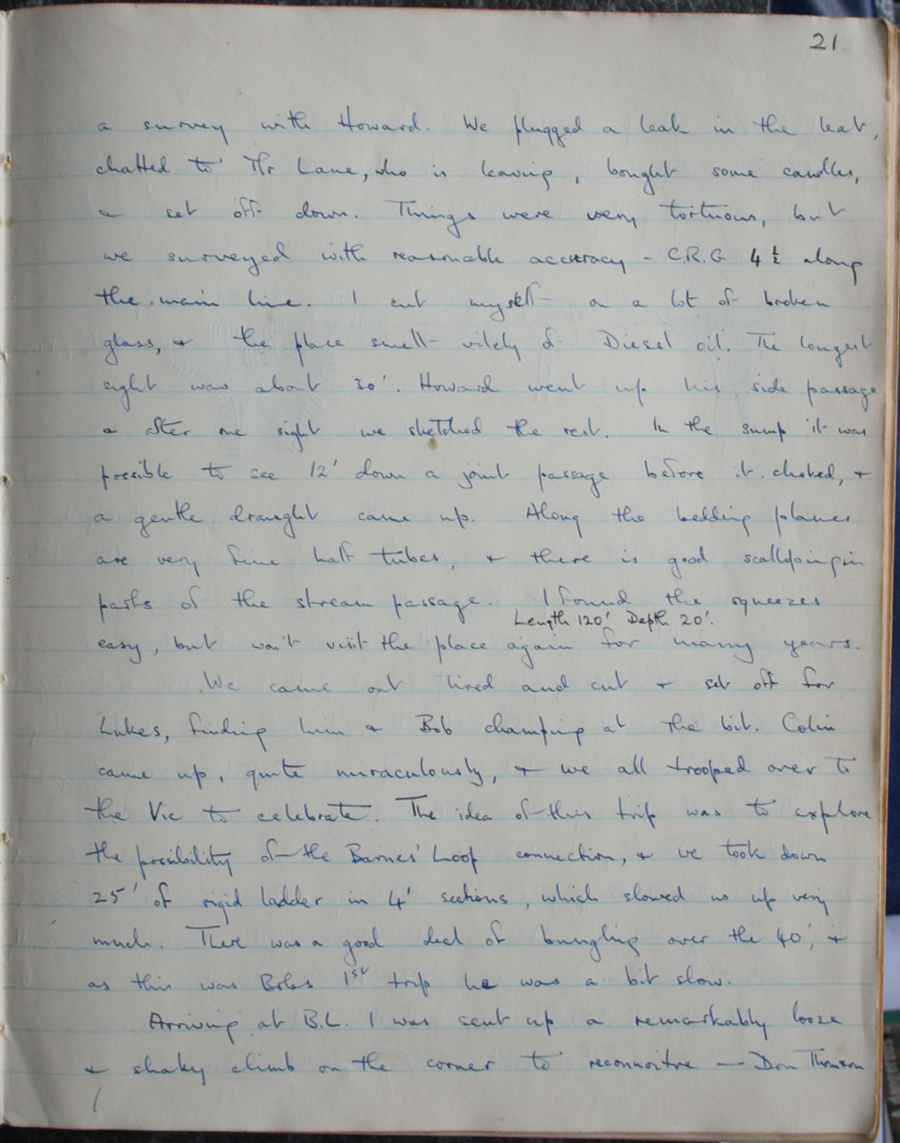 21
a survey with Howard. We plugged a leak in the leat,
chatted to Mr Lane, who is leaving, bought some candles,
& set off down. Things were very tortuous, but
we surveyed with reasonable accuracy - C.R.G 4½ along
the main line. I cut myself on a lot of broken
glass, & the place smelt vilely of Diesel oil. The longest
sight was about 30'. Howard went up his side passage
& after one sight we sketched the rest. In the sump it was
possible to see 12' down a joint passage before it choked, &
a gentle draught came up. Along the bedding planes
are very fine half tubes, & there is good scalloping in
parts of the stream passage. I found the squeezes
Length 120' Depth 20'.
easy, but won't visit the place again for many years.
We came out tired and cut & set off for
Lukes, finding him & Bob champing at the bit. Colin
came up, quite miraculously, & we all trooped over to
the Vic to celebrate. The idea of this trip was to explore
the possibility of the Barnes' Loop connection, & we took down
25' of rigid ladder in 4' sections, which slowed us up very
much. There was a good deal of bungling over the 40', &
as this was Bobs 1st trip he was a bit slow.
Arriving at B.L. I was sent up a remarkably loose
& shaky climb on the corner to reconnoitre -- Don Thomson